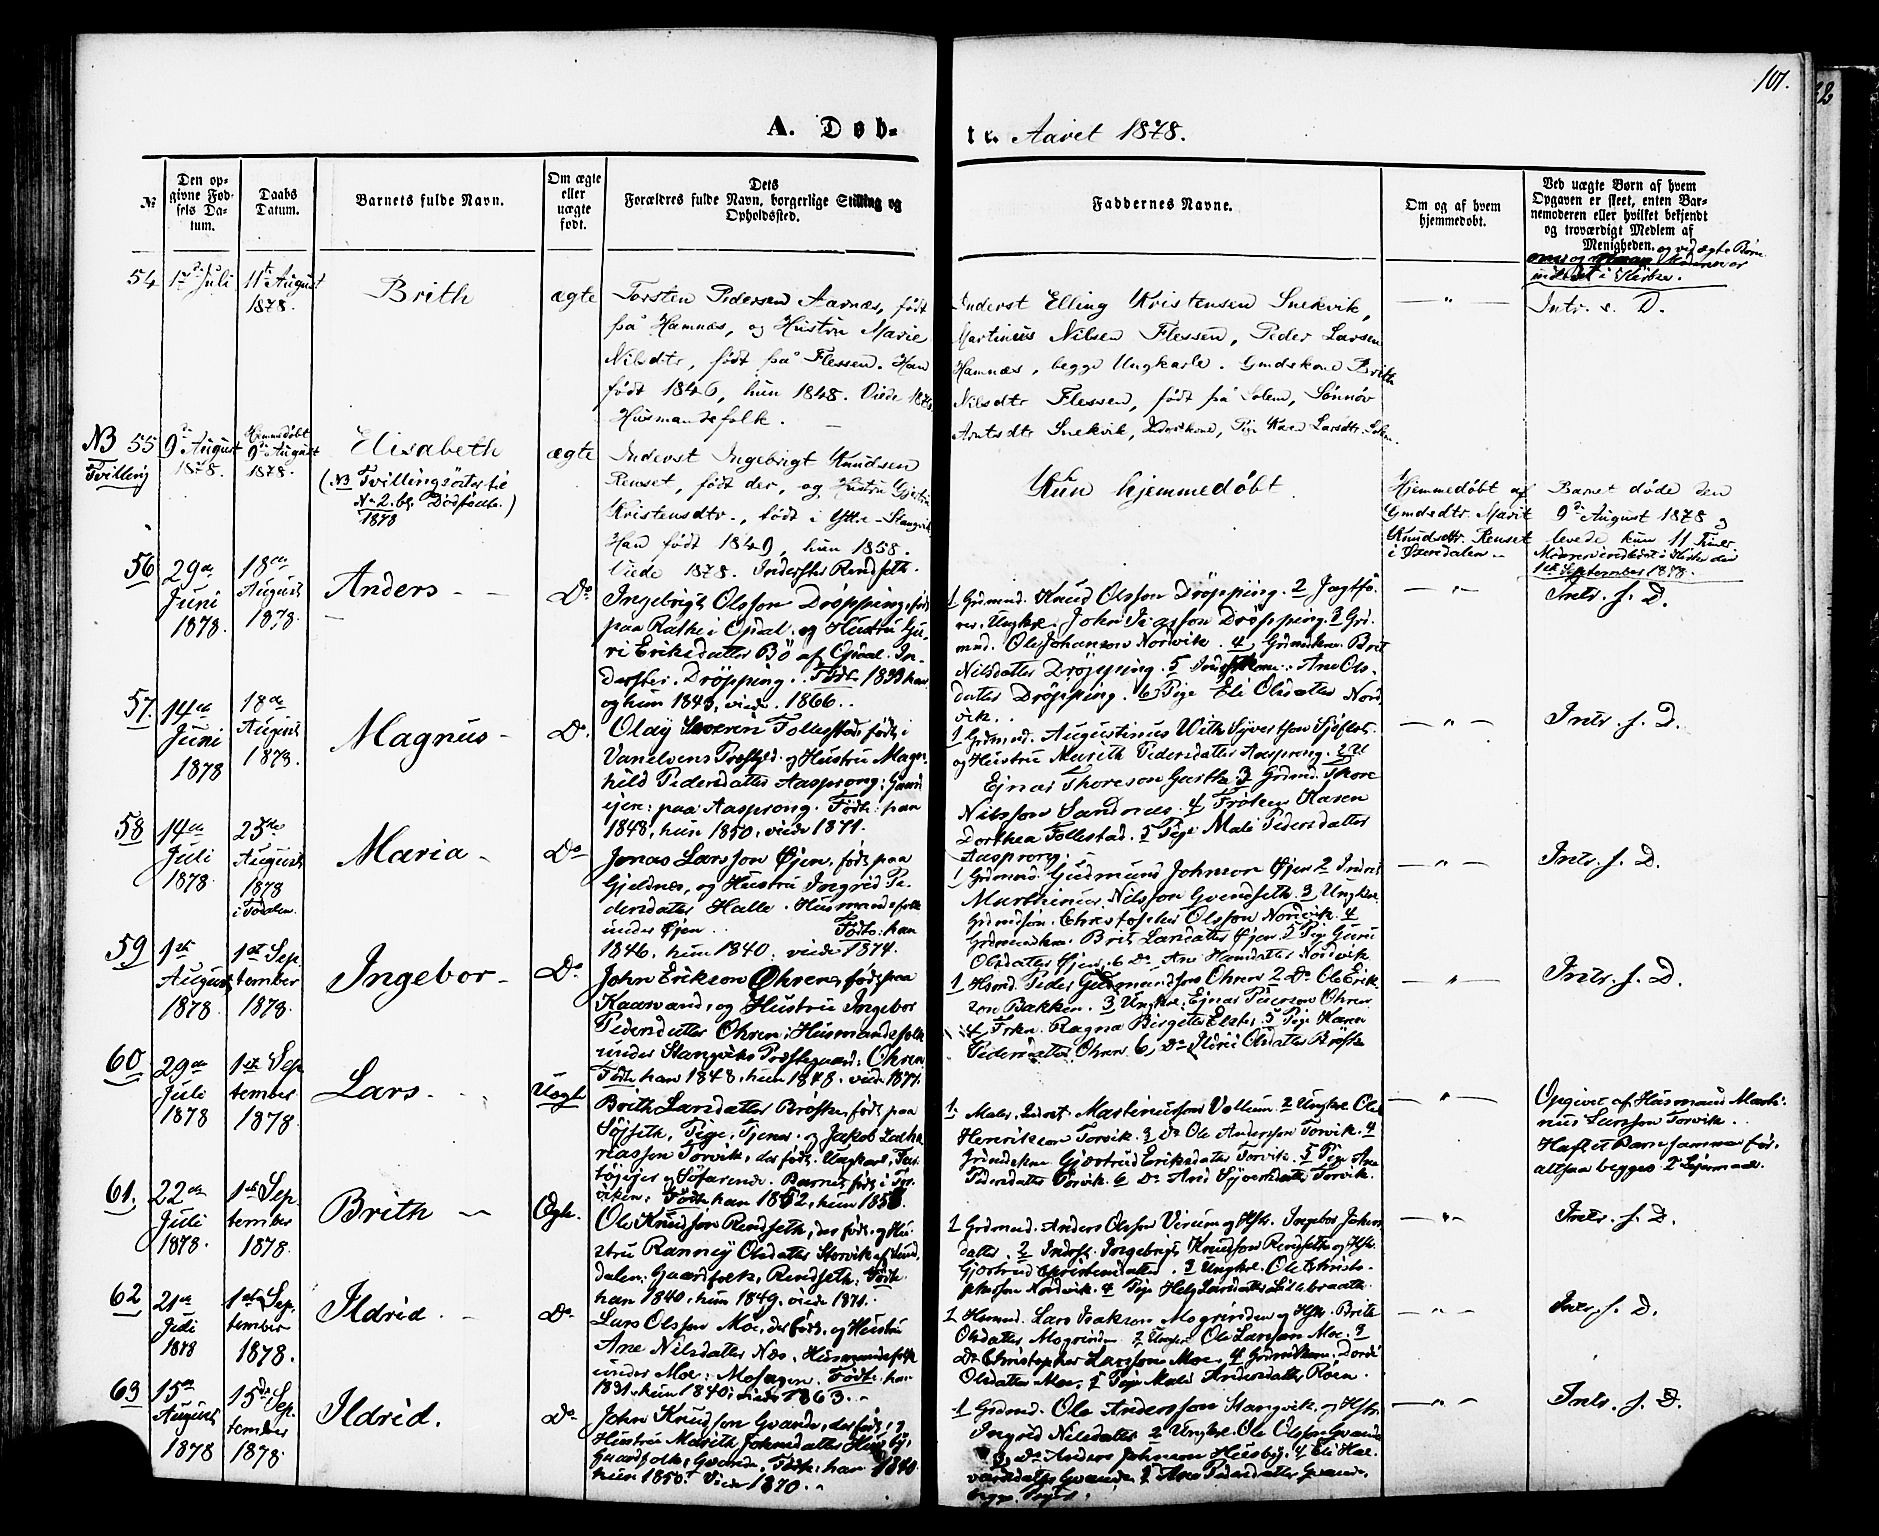 101.
A. Døb-
te. Aaret 1878.
№
Den op-
givne Fød-
sels Da-
tum.
Daabs
Datum.
Barnets fulde Navn.
Om ægte
eller
uægte
født.
Dets
Forældres fulde Navn, borgerlige Stilling og
Opholdssted.
Faddernes Navne.
Om og af hvem
hjemmedøbt.
Ved uægte Børn af hvem
Opgaven er skeet, enten Bar-
nemoderen eller hvilket bekjendt
og troværdigt Medlem af
Menigheden. og ved ægte Børn
Moderen er
indledet i Kirken.
54
1ste Juli
11te August
1878.
Brith
ægte
Torsten Pedersen Aarnæs, født
på Hamnæs, og Hustru Marie
Nilsdtr, født på Flessen. Han
født 1846, hun 1848. Viede 1876
Husmandsfolk.
Inderst Elling Kristensen Snekvik,
Martinus Nilsen Flessen, Peder Larsen
Hamnæs, begge Ungkarle. Gmdskone Brith
Nilsdtr Flessen, født på Solem, Sønnøv
Arntsdtr Snekvik, Inderstkone, Pige Karen Larsdtr Solem.
— " —
Intr. s. D.
NB 55
Tvilling
9de August
1878.
Hjemmedøbt
9de August
1878.
Elisabeth
(NB Tvillingsøster til
No 2. bl. Dødfødte.)
1878
ægte
Inderst Ingebrigt Knudsen
Renset, født der, og Hustru Gjertru
Kristensdtr., født i Yttre-Stangvik
Han født 1849, hun 1858.
Viede 1878. Inderster Rendseth.
Kun hjemmedøbt.
Hjemmedøbt af
Gmdsdtr. Marit
Knudsdtr. Renset
i Øxendalen.
Barnet døde den
9de August 1878 og
levede kun 11 Timer
Moderen indledet i Kirken den
1ste September 1878.
56
29de
Juni
1878.
18de
August
1878.
Anders
Do
Ingebrigt Olsson Drøpping, født
paa Rathe i Opdal, og Hustru Gu-
ri Eriksdatter Bø af Opdal. In-
derster. Drøpping. Født 1833 han
og hun 1843, viede 1866.
1 Grdmand. Knud Olsson Drøpping. 2 Jægtfø-
rer, Ungkar. John Olsson Drøpping. 3 Grd.
mnd. Ole Johansen Nordvik. 4 Grdmdskone. Brit
Nilsdatter Drøpping. 5 Inderstkone. Ane Ols-
datter Drøpping. 6 Pige Eli Olsdatter Nord
vik.
— " —
Intr. s. D.
57.
14de
Juni
1878
18de
August
1878.
Magnus
Do
Olay Severin Follestad, født i
Vanelvens Præstgjld. og Hustru Magn-
hild Pedersdatter Aasprong. Gaard
ejer: paa Aasprong. Født: han
1848, hun 1850, viede 1871.
1 Grdmand. Augustinus With Syvertson Sjøflot
og Hustru Marith Pedersdatter Aasprong. 2
Ejnar Thoreson Garth. 3 Grdmd. Thore
Nilsson Sandnes. 4 Frøken Karen
Dorthea Follestad. 5 Pige Mali Pedersdatter
Aasprong.
— " —
Intr. s. D.
58
14de
Juli
1878.
25de
August
1878
i Todalen.
Maria
Do
Jonas Larsson Øjen, født paa
Gjeldnes, og Hustru Ingrid Pe-
dersdatter Halle. Husmandsfolk
under Øjen. Født: han
1846, hun 1840, viede 1874.
1 Grdmand. Gudmund Johnson Øjen 2 Inderst
Marthinus Nilsson Gvendseth. 3 Ungkar.
Grdmdsøn. Christopher Olsson Nordvik. 4
Grdmandskone. Brit Larsdatter Øjen. 5 Pige Guru
Olsdatter Øjen. 6 Do Ane Hansdatter Nordvik
— " —
Intr. s. D.
59
1ste
August
1878
1ste Sep
tember
1878.
Ingebor
Do
John Erikson Øhren, født paa
Kaarvand, og Hustru Ingebor
Pedersdatter Øhren. Husmandsfolk
under Stangviks Præstegaard: Øhren
Født: han 1848, hun 1848, viede 1877.
1 Hsmd. Peder Gudmundson Øhren 2 Do Ole Erik
son Bakken. 3 Ungkar. Ejnar Pederson Øhren
4 Frkn. Ragna Birgitte Elster, 5 Pige Karen
Pedersdatter Øhren 6 Do Ildrid Olsdatter Brøske
— " —
Intr. s. D.
60
29de
Juli
1878
1ste Sep
tember
1878.
Lars
Uægte
Brith Larsdatter Brøske, født paa
Søjseth, Pige, Tjener, og Jakob Zacha
riasson Torvik, der født. Ungkarl,
og Søfarende. Barnet født i Tor
viken. Født: han 1852, hun 1856.
1. Martinusson Vollum. 2 Ungkar. Ole
Henrikson Torvik. 3 Do Ole Andersson Torvik. 4
Grdmdskone Gjertrud Eriksdatter Torvik. 5 Pige Ane
Pedersdatter Torvik. 6 Do Ane Syversdatter Torvik.
— " —
Opgivet af Husmand Marti-
nus Larsson Torvik.
Haft et Barn sammen før,
altsaa begges 2 Lejermaal.
61.
22de
Juli
1878.
1ste Sep
tember
1878.
Brith
Ægte.
Ole Knudson Rendseth, der født, og Hu-
stru Rannej Olsdatter Storvik af Sund
dalen: Gaardfolk, Rendseth. Født:
han 1840, hun 1849, viede 1871.
1 Grdmand. Anders Olsson Virum og Hstr. Ingebor Johns
datter, 2 Inderst. Ingebrigt Knudson Rendseth og Hstr.
Gjertrud Christensdatter. 3 Ungkar. Ole Christo-
pherson Nordvik. 4 Pige Larsdatter Lillebraathe.
— " —
Intr. s. D.
62
21de
Juli
1878
1ste Sep
tember
1878.
Ildrid
Do
Lars Olsson Moe, der født, og Hustru
Ane Nilsdatter Næs. Husmandsfolk
under Moe: Mohagen. Født: han
1831, hun 1840, viede 1863.
1 Hsmnd. Lars Isakson Mogrinden og Hstr. Brith
Olsdatter Mogrinden 2 Ungkar. Ole Larsson Moe. 3
Do Christopher Larsson Moe. 4 Grdmdskone. Dordi
Olsdatter Moe, 5 Pige Mali Andersdatter Roen.
— " —
Intr. s. D.
63
15de
August
1878
15de Sep.
tember
1878.
Ildrid.
Do
John Knudson Gvande, der født, og
Hustru Marith Johnsdatter Husby,
Gaardfolk, Gvande. Født: han 1840
hun 1850. Viede 1870.
1 Grdmd. Ole Andersson Stangvik og Hstr.
Ingrid Nilsdatter 2 Ungkar. Ole Olsson Gvande
3 Do Anders Johnson Husby. 4 Eli Hal-
vardsdatter Gvande. 5 Ane Pedersdatter Gvande,
begge Piger.
— " —
Intr. s. D.